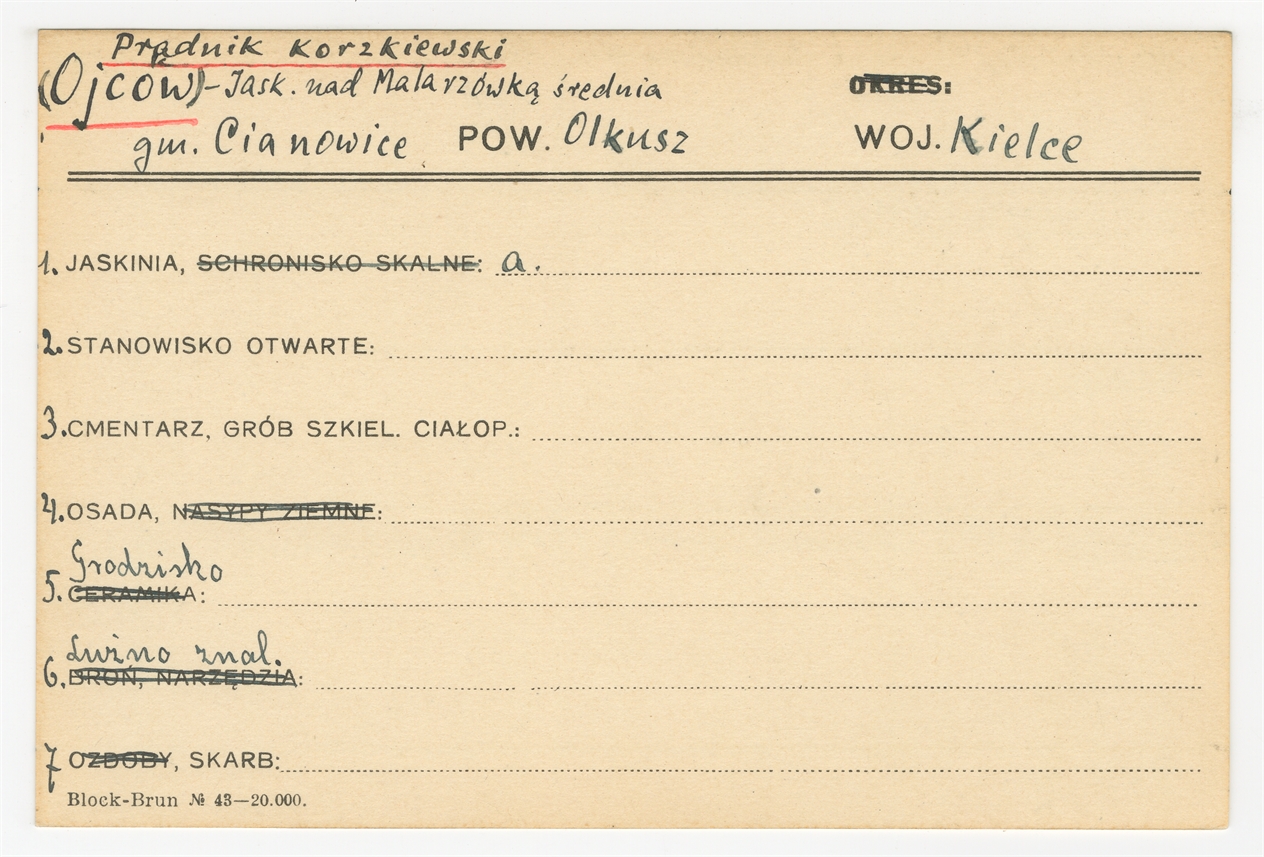 Prądnik Korzkiewski
(Ojców) - Jask. nad Malarzówką średnia
OKRES:
gm. Cianowice POW. Olkusz WOJ. Kielce
1. JASKINIA, SCHRONISKO SKALNE: a.
2. STANOWISKO OTWARTE:
3. CMENTARZ, GRÓB SZKIEL. CIAŁOP.:
4. OSADA, NASYPY ZIEMNE:
Grodzisko
5. CERAMIKA:
Luźno znal.
6. BROŃ, NARZĘDZIA:
7 OZDOBY, SKARB:
Block-Brun № 43—20.000.